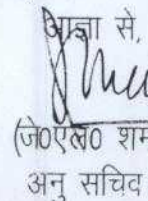 आज्ञा से,
(जे०एल० शर्म
अनु सचिव